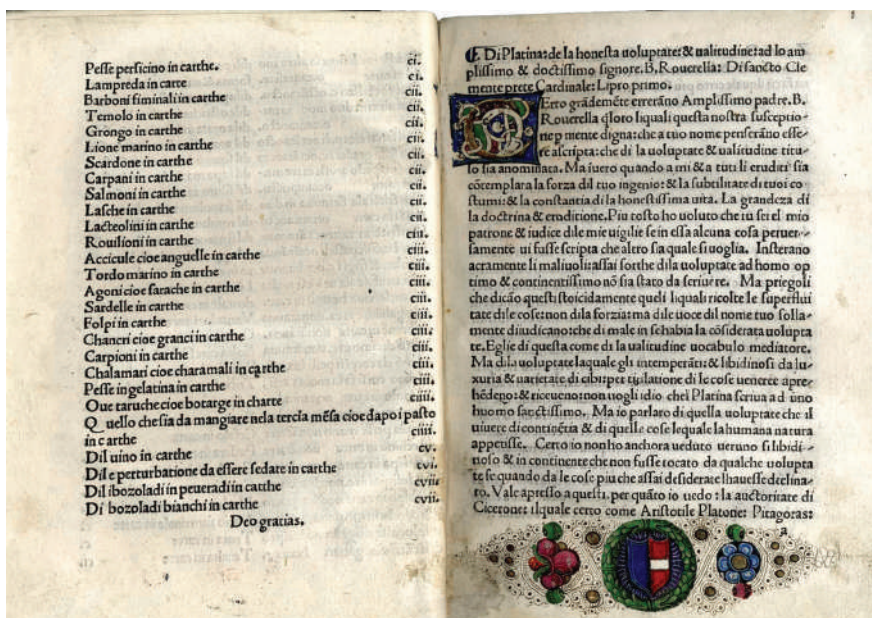 Pesse persicino in carthe. ci.
Lampreda in carte ci.
Barboni fiminali in carthe cii.
Temolo in carthe cii.
Grongo in carthe cii.
Lione marino in carthe cii.
Scardone in carthe cii.
Carpani in carthe cii.
Salmoni in carthe cii.
Lasche in carthe cii.
Lacteolini in carthe cii.
Rouilioni in carthe ciii.
Accicule cioe anguelle in carthe ciii.
Tordo marino in carthe ciii.
Agoni cioe sarache in carthe ciii.
Sardelle in carthe ciii.
Folpi in carthe ciii.
Chancri cioe granci in carthe ciii.
Carpioni in carthe ciii.
Chalamari cioe charamali in carthe ciii.
Pesse in gelatina in carthe ciiii.
Oue taruche cioe botarge in charte ciiii.
Quello che sia da mangiare nela tercia mēsa cioe dapo i pasto
in carthe ciiii.
Dil uino in carthe cv.
Dile perturbatione da essere sedate in carthe cvi.
Dil ibozoladi in peueradi in catthe cvii.
Di bozoladi bianchi in carthe cvii.
Deo gratias.
Di Platina: de la honesta uoluptate: & ualitudine: ad lo am
plissimo & doctissimo signore. B. Rouerella: Di sancto Cle
mente prete Cardinale: Lipro primo.
CErto grādemēte errerāno Amplissimo padre. B.
Rouerella q̄loro liquali questa nostra susceptio-
ne p mente digna: che a tuo nome penserāno esse-
re ascripta: che di la uoluptate & ualitudine titu-
lo sia anominata. Ma iuero quando a mi & a tuti li eruditi sia
cōtemplara la forza dil tuo ingenio: & la subtilitate di tuoi co-
stumi: & la constantia di la honestissima uita. La grandeza di
la doctrina & eruditione. Piu tosto ho uoluto che tu sei el mio
patrone & iudice dile mie uigilie se in essa alcuna cosa peruer-
samente ui fusse scripta che altro sia quale si uoglia. Insterano
acramente li maliuoli: assai forthe di la uoluptate ad homo op
timo & continentissimo nō sia stato da scriuere. Ma priegoli
che dicāo questi stoicidamente quedi liquali ricolte le superflui
tate dile cose: non dila forzia: ma dile uoce dil nome tuo solla-
mente diiudicano: che di male in se habia la cōsiderata uolupta
te. Eglie di questa come di la ualitudine uocabulo mediatore.
Ma dila uoluptate laquale gli intemperāti: & libidinosi da lu-
xuria & uarietate di cibi: per titilatione di le cose ueneree apre-
hēdeno: & riceueno: non uogli idio chel Platina scriua ad uno
huomo sāctissimo. Ma io parlaro di quella uoluptate che il
uiuere di continētia & di quelle cose lequale la humana natura
appetisse. Certo io non ho anchora ueduto ueruno si libidi-
noso & in continente che non fusse tocato da qualche uolupta
te se quando da le cose piu che assai desiderate lhauesse declina-
to. Vale apresso a questi. per quāto io uedo: la auctoritate di
Cicerone: ilquale certo come Aristotile Platone: Pitagoras:
a